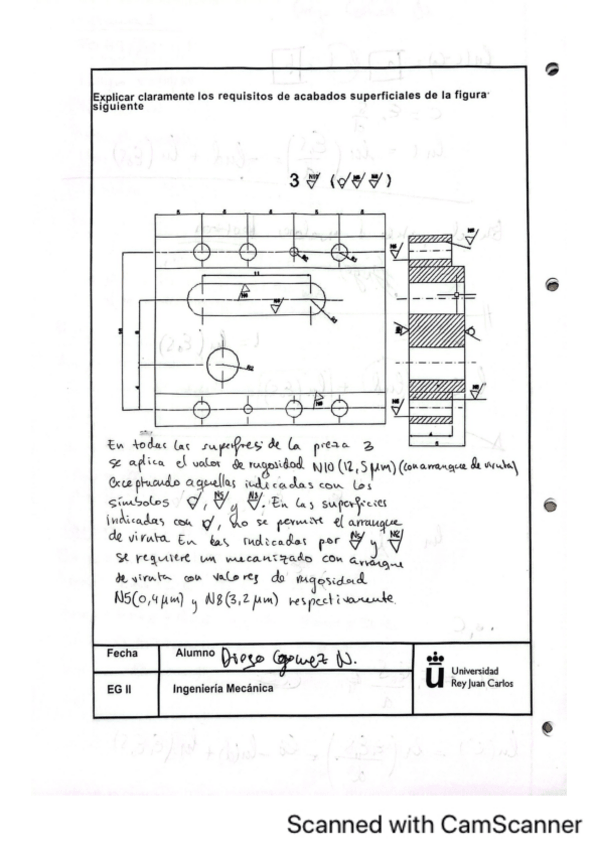 Explicar claramente los requisitos de acabados superficiales de la figura
siguiente
3 N10 (
En todas las superfies de la pieza 3
se aplica el valor de rugosidad N10 (12,5 μm) (con arranque de viruta)
exceptuando aquellas indicadas con los
símbolos , N5 y N8. En las superficies
indicadas con , no se permite el arranque
de viruta En las indicadas por N5 y N8
se requiere un mecanizado con arranque
de viruta con valores de rugosidad
N5 (0,4 μm) y N8 (3,2 μm) respectivamente.
Fecha
Alumno Diego Gomez N.
EG II
Ingeniería Mecánica
Universidad
Rey Juan Carlos
Scanned with CamScanner